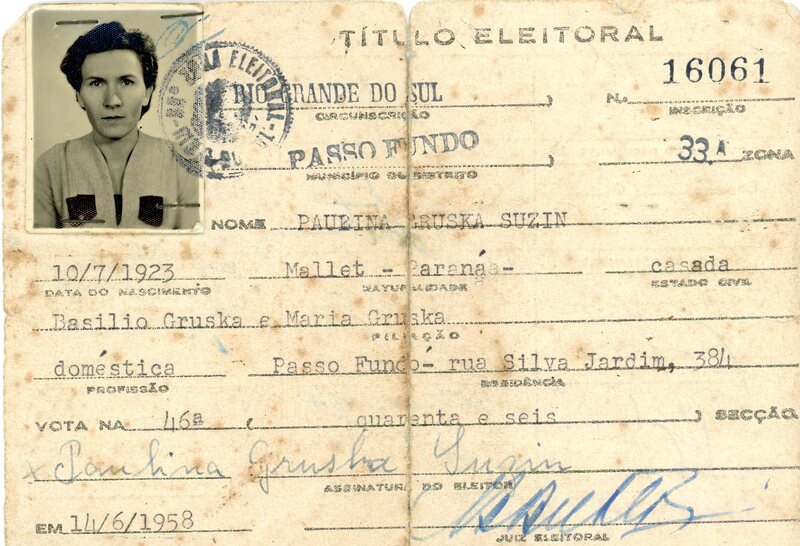 TÍTULO ELEITORAL
16061
RIO GRANDE DO SUL, N.
CIRCUNSCRIÇÃO INSCRIÇÃO
PASSO FUNDO, 33.A ZONA
MUNICÍPIO OU DISTRITO
NOME PAULINA GRUSKA SUZIN
10/7/1923 Mallet - Paraná- casada
DATA DO NASCIMENTO NATURALIDADE ESTADO CIVIL
Basilio Gruska e Maria Gruska
FILIAÇÃO
doméstica Passo Fundo- rua Silva Jardim, 384
PROFISSÃO RESIDÊNCIA
VOTA NA 46a ( quarenta e seis ) SECÇÃO
x Paulina Gruska Suzin
ASSINATURA DO ELEITOR
EM 14/6/1958
JUIZ ELEITORAL